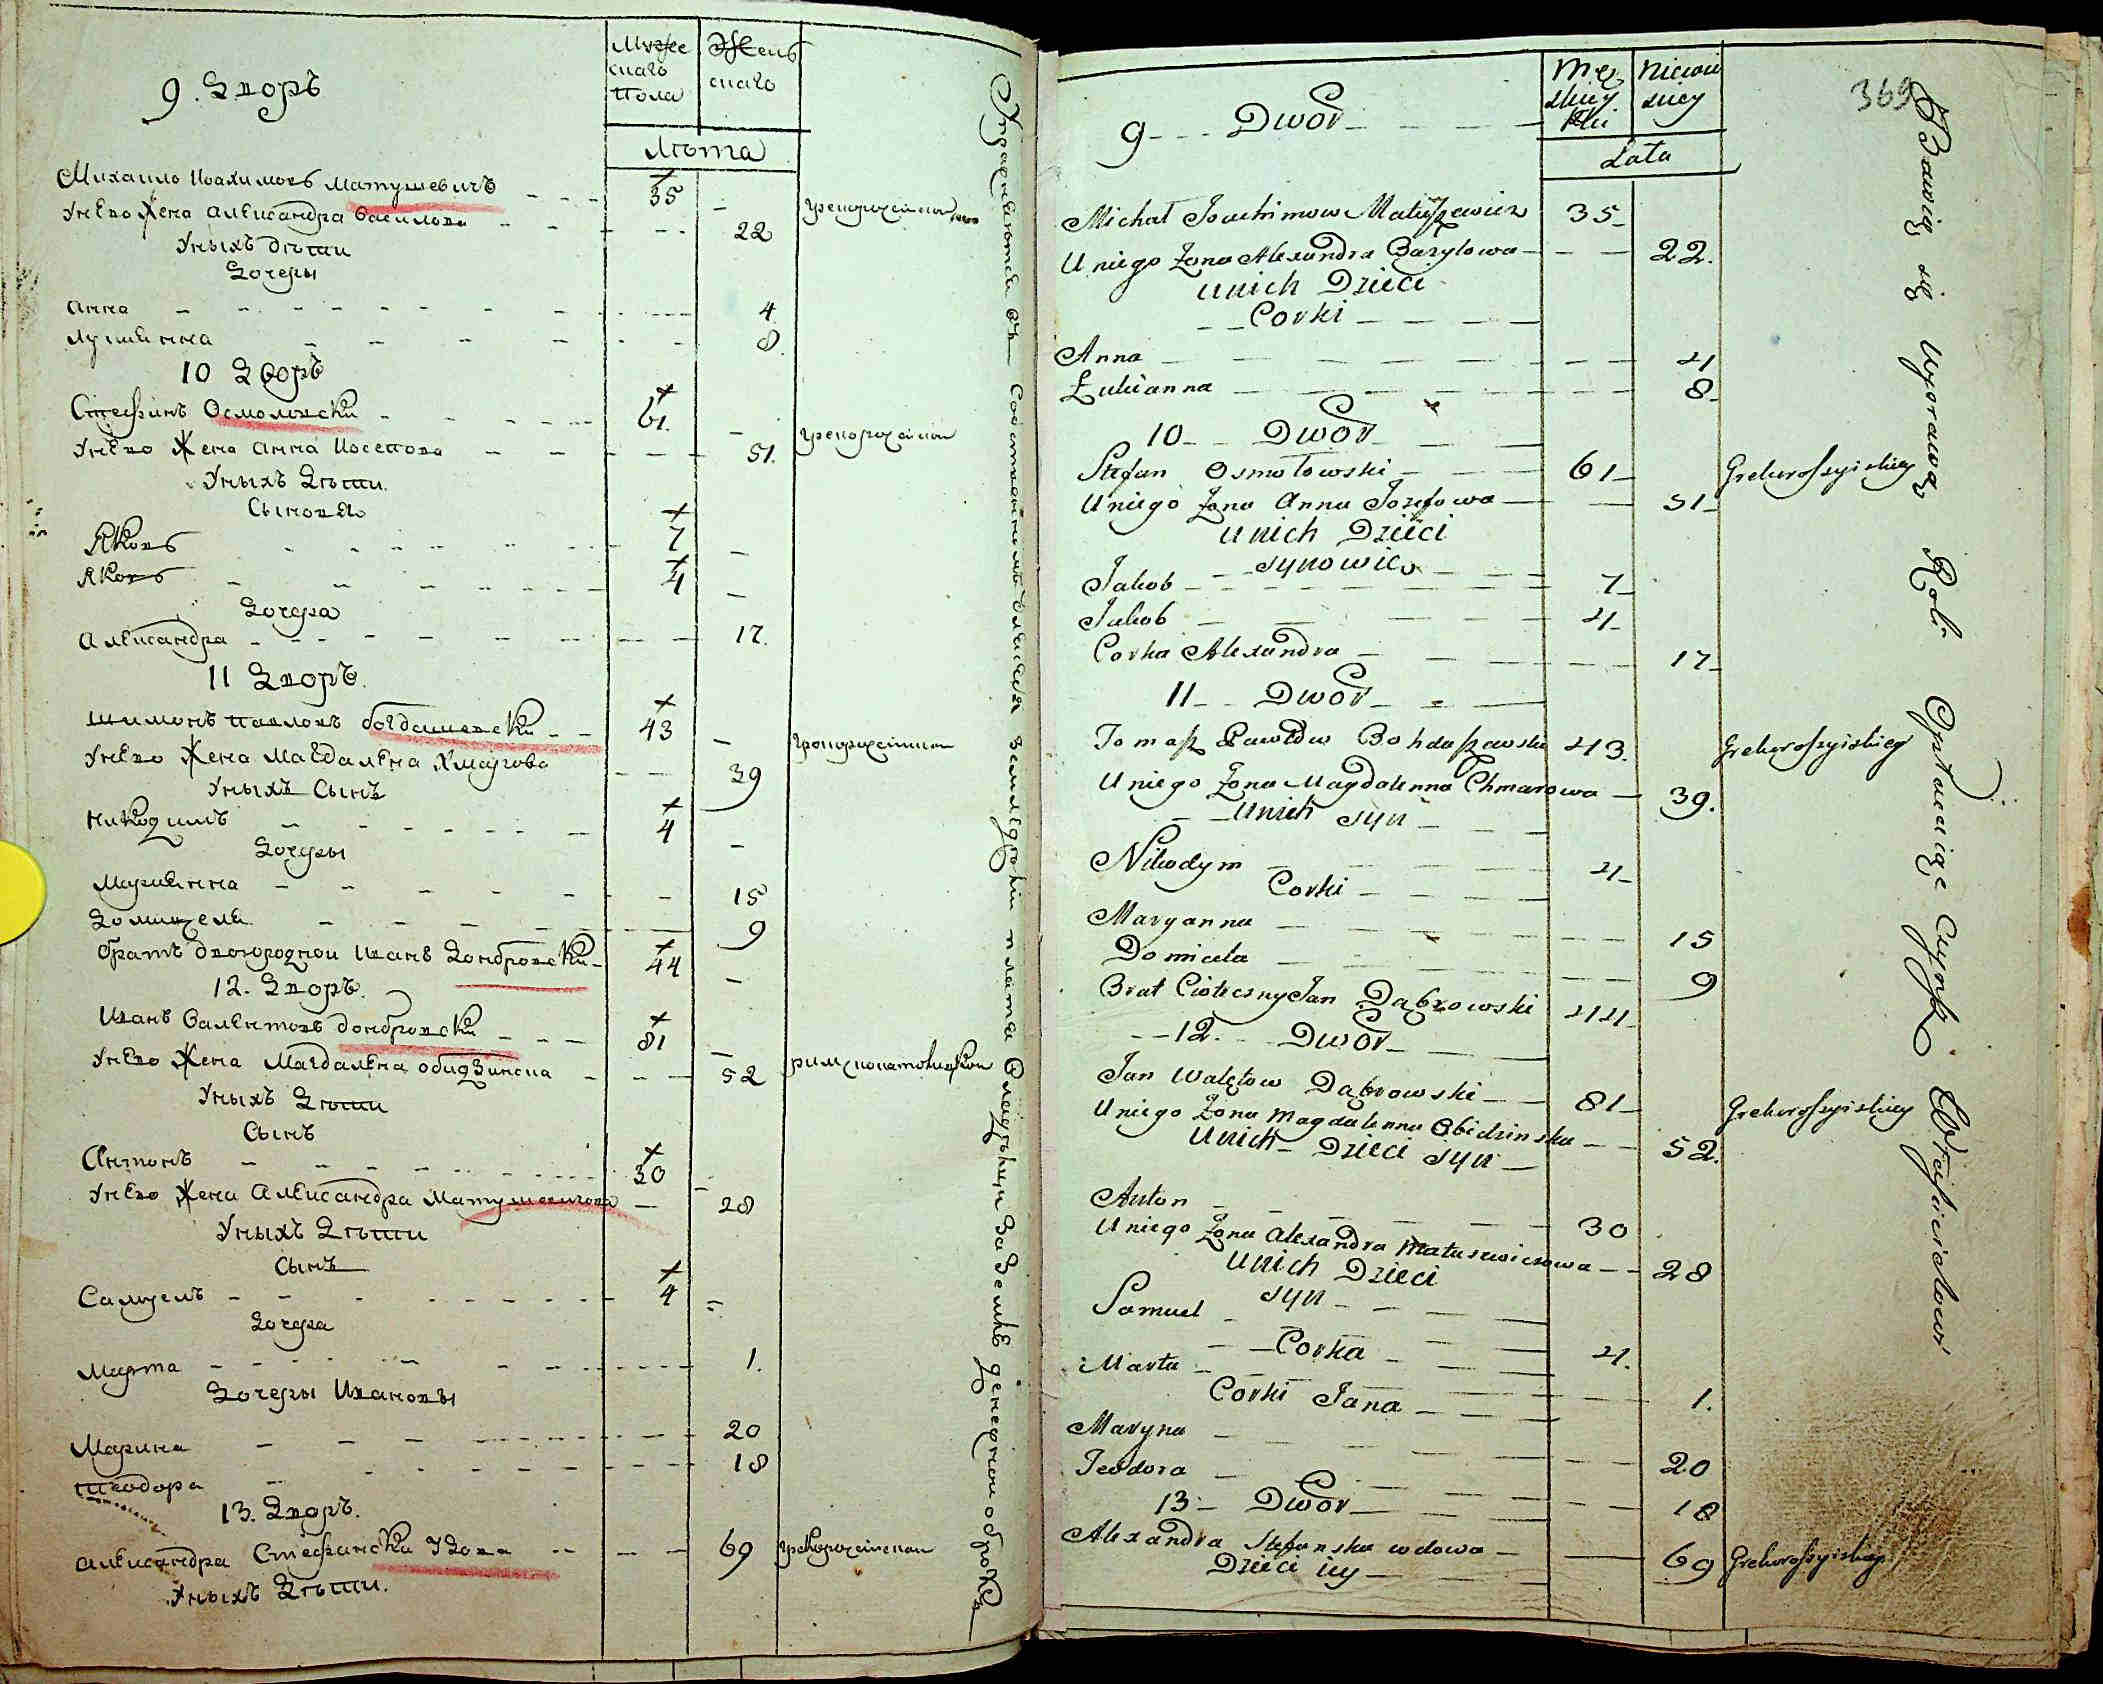 9. Дворъ
Мужескаго пола
Женскаго
Лѣта
Михаило Иоахимовъ Матушевичъ - - - 35 - грекороссійской
Унево Жена Александра Василова - - - 22
Уныхъ дѣти
Дочеры
Анна - - - 4
Лукіянна - - - 8
10 Дворъ
Стефанъ Осмоловски - - - 61. - грекороссійской
Унево Жена Анна Иосепова - - - 51.
Уныхъ Дѣти.
Сыновя
Яковъ - - - 7 -
Яковъ - - - 4 -
Дочера
Александра - - - 17.
11 Дворъ.
Шимонъ Павловъ Богдашевски - - 43 - грекороссійской
Унево Жена Магдалена Хмарова - - 39
Уныхъ Сынъ
Никодимъ - - - 4 -
Дочеры
Маріянна - - - 15
Домицеля - - - 9
братъ двоюродной Иванъ Домбровски - 44 -
12. Дворъ.
Иванъ Валентовъ Домбровски - - - 81 -
Унево Жена Магдалена Обидзинска - - - 52 римскокатолицкой
Уныхъ Дѣти
Сынъ
Антонъ - - - 30 -
Унево Жена Александра Матушевичова - 28
Уныхъ Дѣти
Сынъ
Самуелъ - - - 4 -
Дочера
Марта - - - 1.
Дочеры Ивановы
Марина - - - 20
Теодора - - - 18
13. Дворъ.
Александра Стефанска Удова - - - 69 грекороссійской
Уныхъ Дѣти.
369
9 - - - Dwor - - -
Męzkiey Płci
Niewieściey
Lata
Michał Joachimow Matuszewicz 35 -
U niego Żona Alexandra Bazylowa - - - 22.
U nich Dzieci
- - Corki - - -
Anna - - - 4
Łukianna - - - 8 -
10 - - Dwor - -
Stefan Osmołowski - - - 61 - Grekorossyiskiey
U niego Żona Anna Jozefowa - - 51 -
U nich Dzieci
- - Synowie - -
Jakob - - - 7 -
Jakob - - - 4 -
Corka Alexandra - - - 17 -
11 - - Dwor - -
Tomasz Pawłow Bohdaszewski 43. Grekorossyiskiey
U niego Żona Magdalenna Chmarowa - 39.
- - U nich Syn - -
Nikodym - - - 4 -
Corki - - -
Maryanna - - - 15
Domicela - - - 9
Brat Cioteczny Jan Dąbrowski 44 -
- - 12. - Dwor - -
Jan Walętow Dąbrowski - - 81 - Grekorossyiskiey
U niego Żona Magdalenna Obidzinska - - 52.
U nich - Dzieci Syn -
Anton - - - 30
U niego Żona Alexandra Matuszewiczowa - - 28
U nich Dzieci
Syn - - -
Samuel - - - 4.
- - Corka - - -
Marta - - - 1.
Corki Jana - - -
Maryna - - - 20
Teodora - - - 18
13 - Dwor - -
Alexandra Stefanska wdowa - - 69 Grekorossyiskiey
Dzieci iey - - -
Bawią się Uprawą Roli Opłacaiąc Czynsz